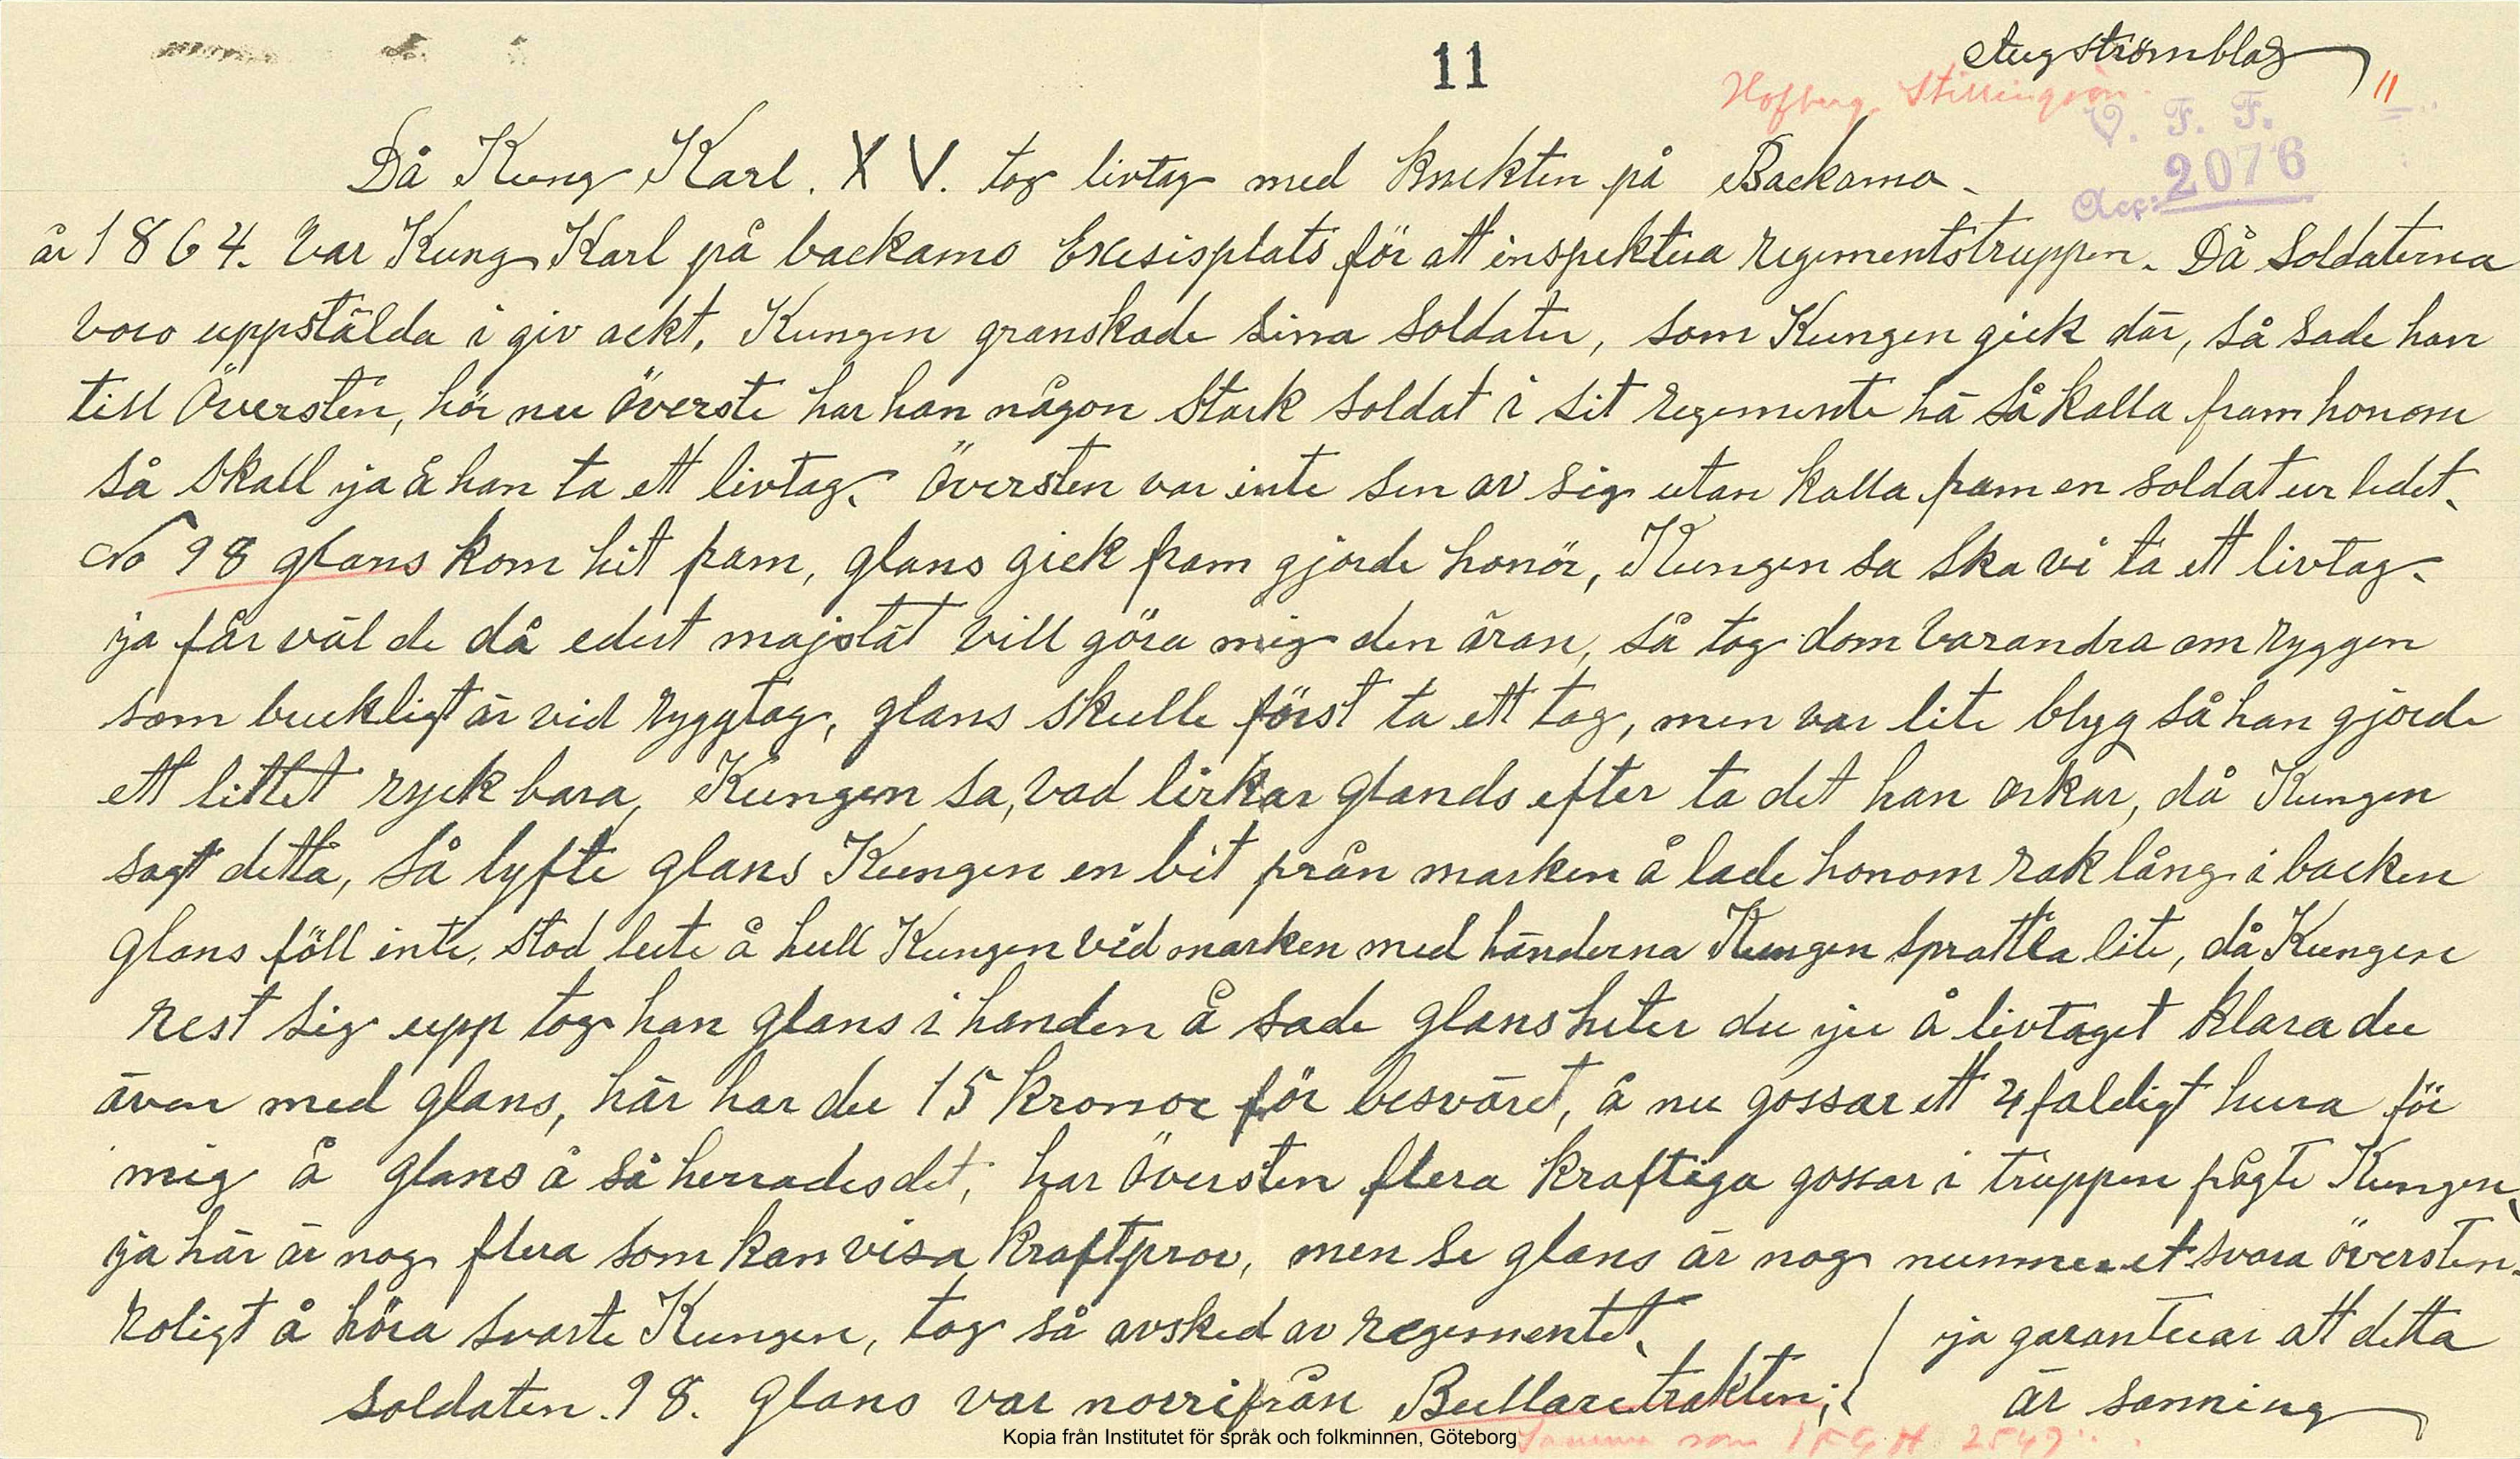 11
Aug Strömblad
Hofberg. Stillingsön.
11
V. F. F.
Acc: 2076
Då Kung Karl. XV. tog livtag med knekten på Backamo.
år 1864. Var Kung Karl på backamo Exesisplats för att inspektera regimentstruppen. Då Soldaterna
voro uppstälda i giv ackt, Kungen granskade sina soldater, som Kungen gick där, så sade han
till Översten, hör nu Överste har han någon Stark soldat i sit regimente hä så kalla fram honom
så skall ja å han ta ett livtag. Översten var inte sen av sig utan kalla fram en soldat ur ledet.
No 98 glans kom hit fram, glans gick fram gjorde honör, Kungen sa ska vi ta ett livtag.
ja får väl de då edert majstät vill göra mig den äran, så tog dom varandra om ryggen
som brukligt är vid ryggtag, glans skulle först ta ett tag, men var lite blyg så han gjorde
ett littet ryck bara, Kungen sa, vad lirkar Glands efter ta det han orkar, då Kungen
sagt detta, så lyfte glans Kungen en bit från marken å lade honom rak lång i backen
Glans föll inte, stod lute å hull Kungen vid marken med händerna Kungen sprattla lite, då Kungen
rest sig upp tog han glans i handen å sade glans heter du ju å livtaget klara du
även med glans, här har du 15 kronor för besväret, å nu gossar ett 4 faldigt hura för
mig å glans å så herrades det, har Översten flera kraftiga gossar i truppen frågte Kungen,
ja här är nog flera som kan visa kraftprov, men se glans är nog nummer et svara översten.
roligt å höra svarte Kungen, tog så avsked av regementet.
ja garanterar att detta
soldaten. 98. Glans var norrifrån Bullaretrakten;
är sanning
Samma som IFGH 2549
Kopia från Institutet för språk och folkminnen, Göteborg